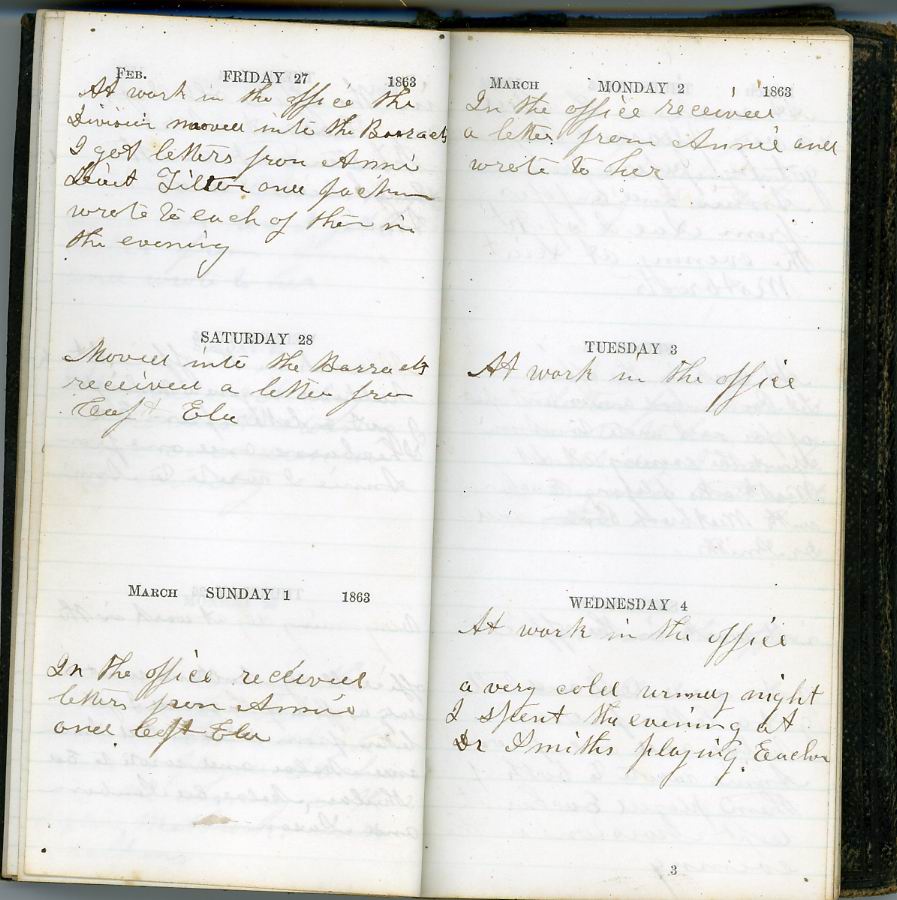 FEB. FRIDAY 27 1863
At work in the office the
Division moved into the Barracks
I got letters from Annie
Lieut Tilton and Jackson
wrote to each of them in
the evening
SATURDAY 28
Moved into the Barracks
received a letter from
Capt Ela
MARCH SUNDAY 1 1863
In the office received
letters from Annie
and Capt Ela
MARCH MONDAY 2 1863
In the office received
a letter from Annie and
wrote to her
TUESDAY 3
At work in the office
WEDNESDAY 4
At work in the office
a very cold windy night
I spent the evening at
Dr Smiths playing Euchre
3